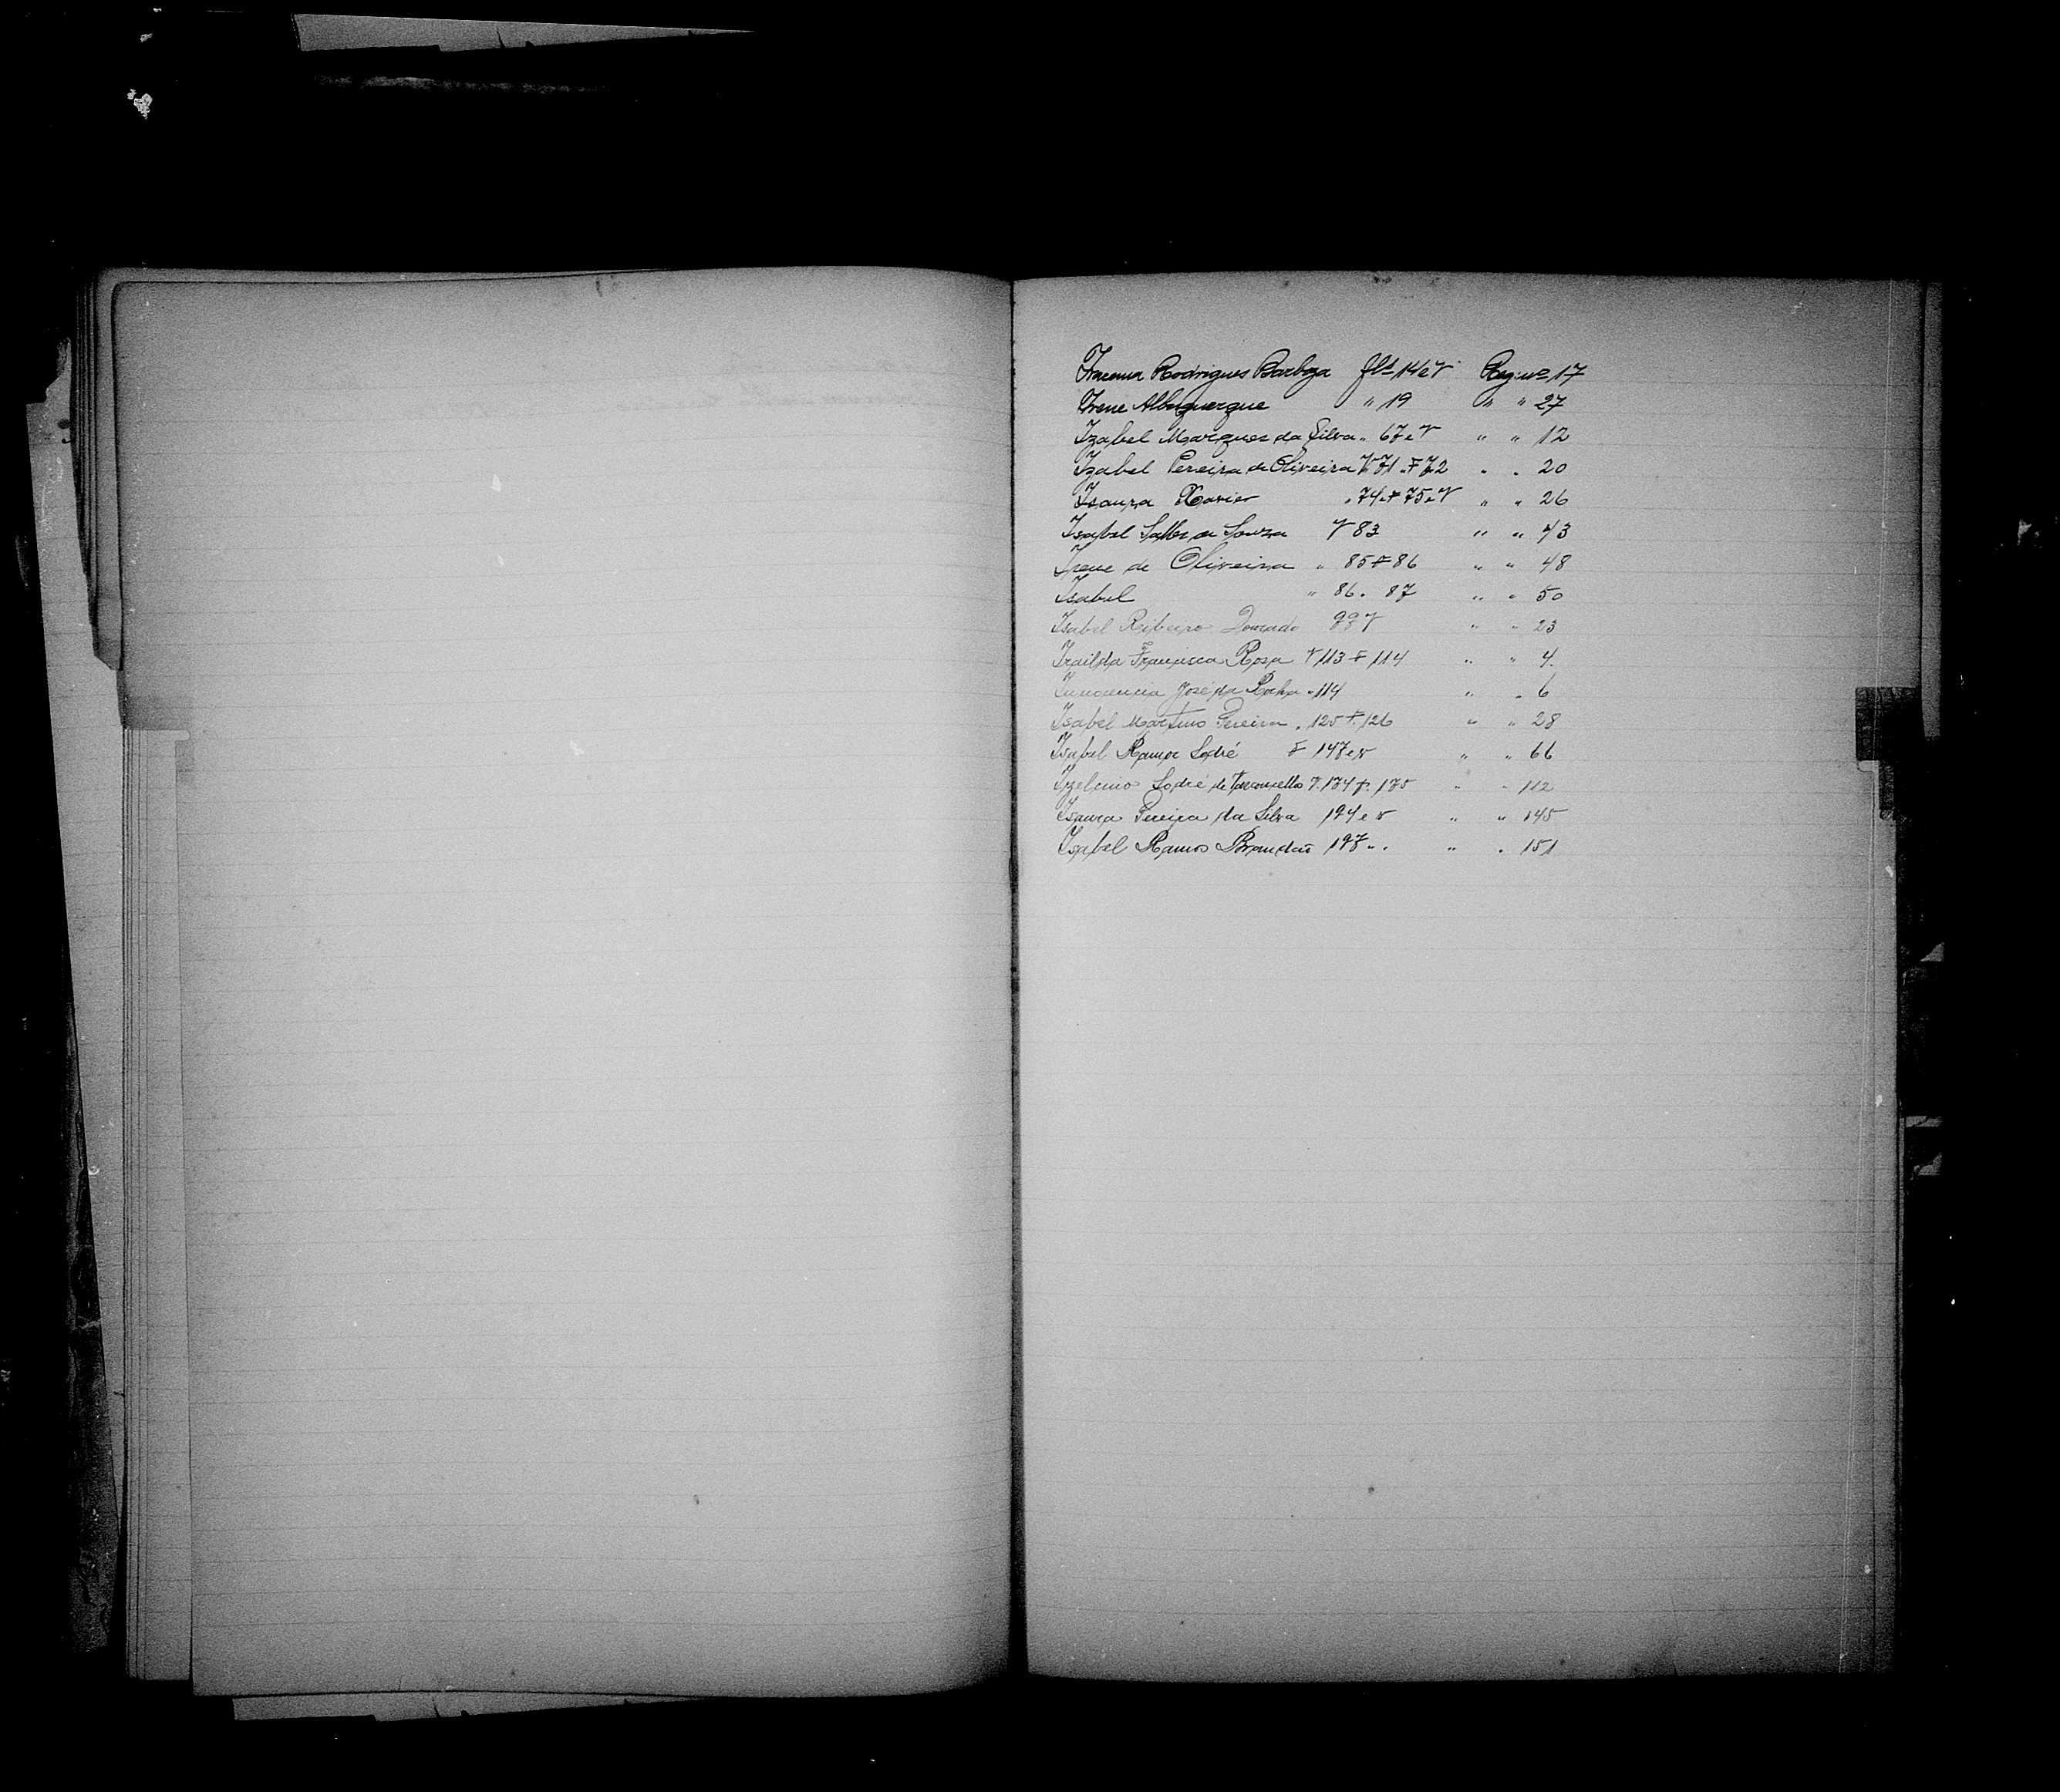 Iracema Rodrigues Barboza fls 14 e V Reg. nº 17
Irene Albuquerque " 19 " " 27
Izabel Marques da Silva " 67 e V " " 12
Izabel Pereira de Oliveira V 71 " F 72 " " 20
Isaura Xavier " 74 " F 75 e V " " 26
Isabel Salles de Souza V 83 " " 43
Irene de Oliveira " 85 F 86 " " 48
Isabel " 86 " 87 " " 50
Isabel Ribeiro Dourado 99 V " " 23
Irailda Francisca Rosa V 113 F 114 " " 4.
Innocencia José da Rocha " 114 " " 6
Isabel Martins Pereira " 125 F. 126 " " 28
Isabel Ramos Sodré F 147 e v " " 66
Izelino Sodré de Vasconcellos V. 174 F. 175 " " 112
Isaura Pereira da Silva 194 e v " " 145
Isabel Ramos Brandão 197 " " " " 151